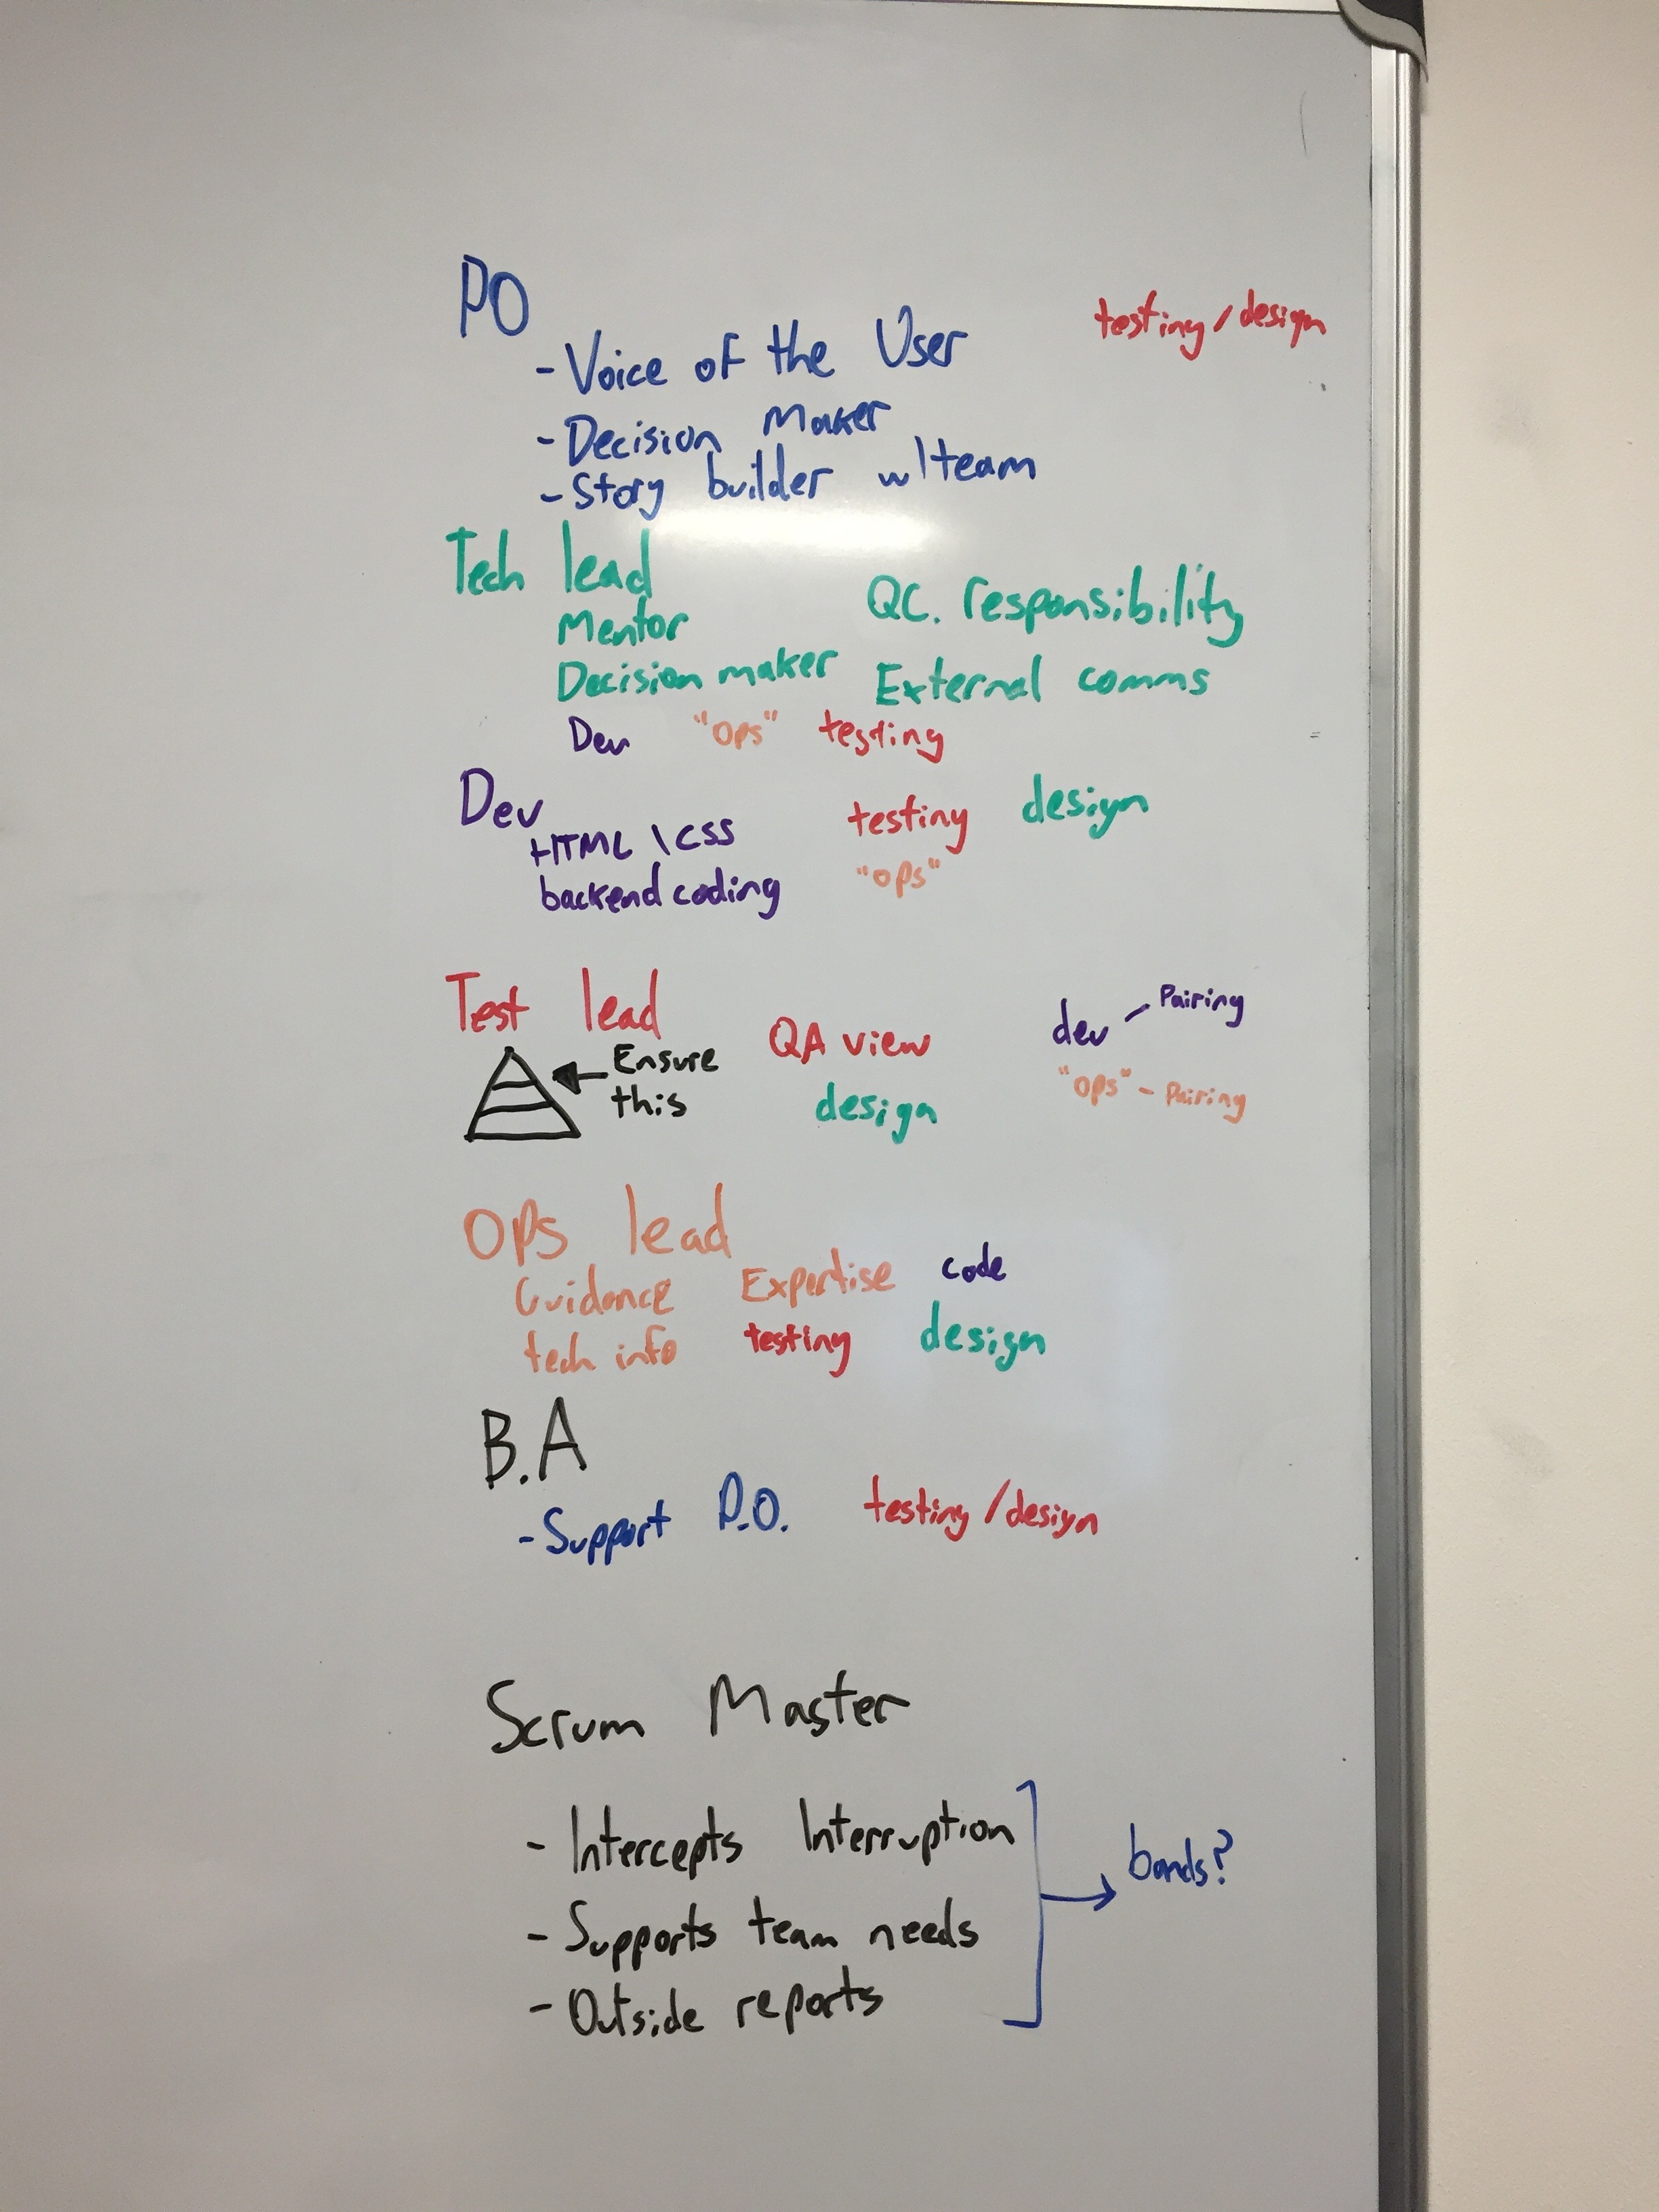 PO
testing / design
- Voice of the User
- Decision Maker
- Story builder w/team
Tech lead
Mentor QC. responsibility
Decision maker External comms
Dev "ops" testing
Dev
HTML \ CSS testing design
backend coding "ops"
Test lead
Ensure this
QA view
design
dev - Pairing
"ops" - Pairing
Ops lead
Guidance Expertise code
tech info testing design
B.A
- Support P.O. testing / design
Scrum Master
- Intercepts Interruption
- Supports team needs
- Outside reports